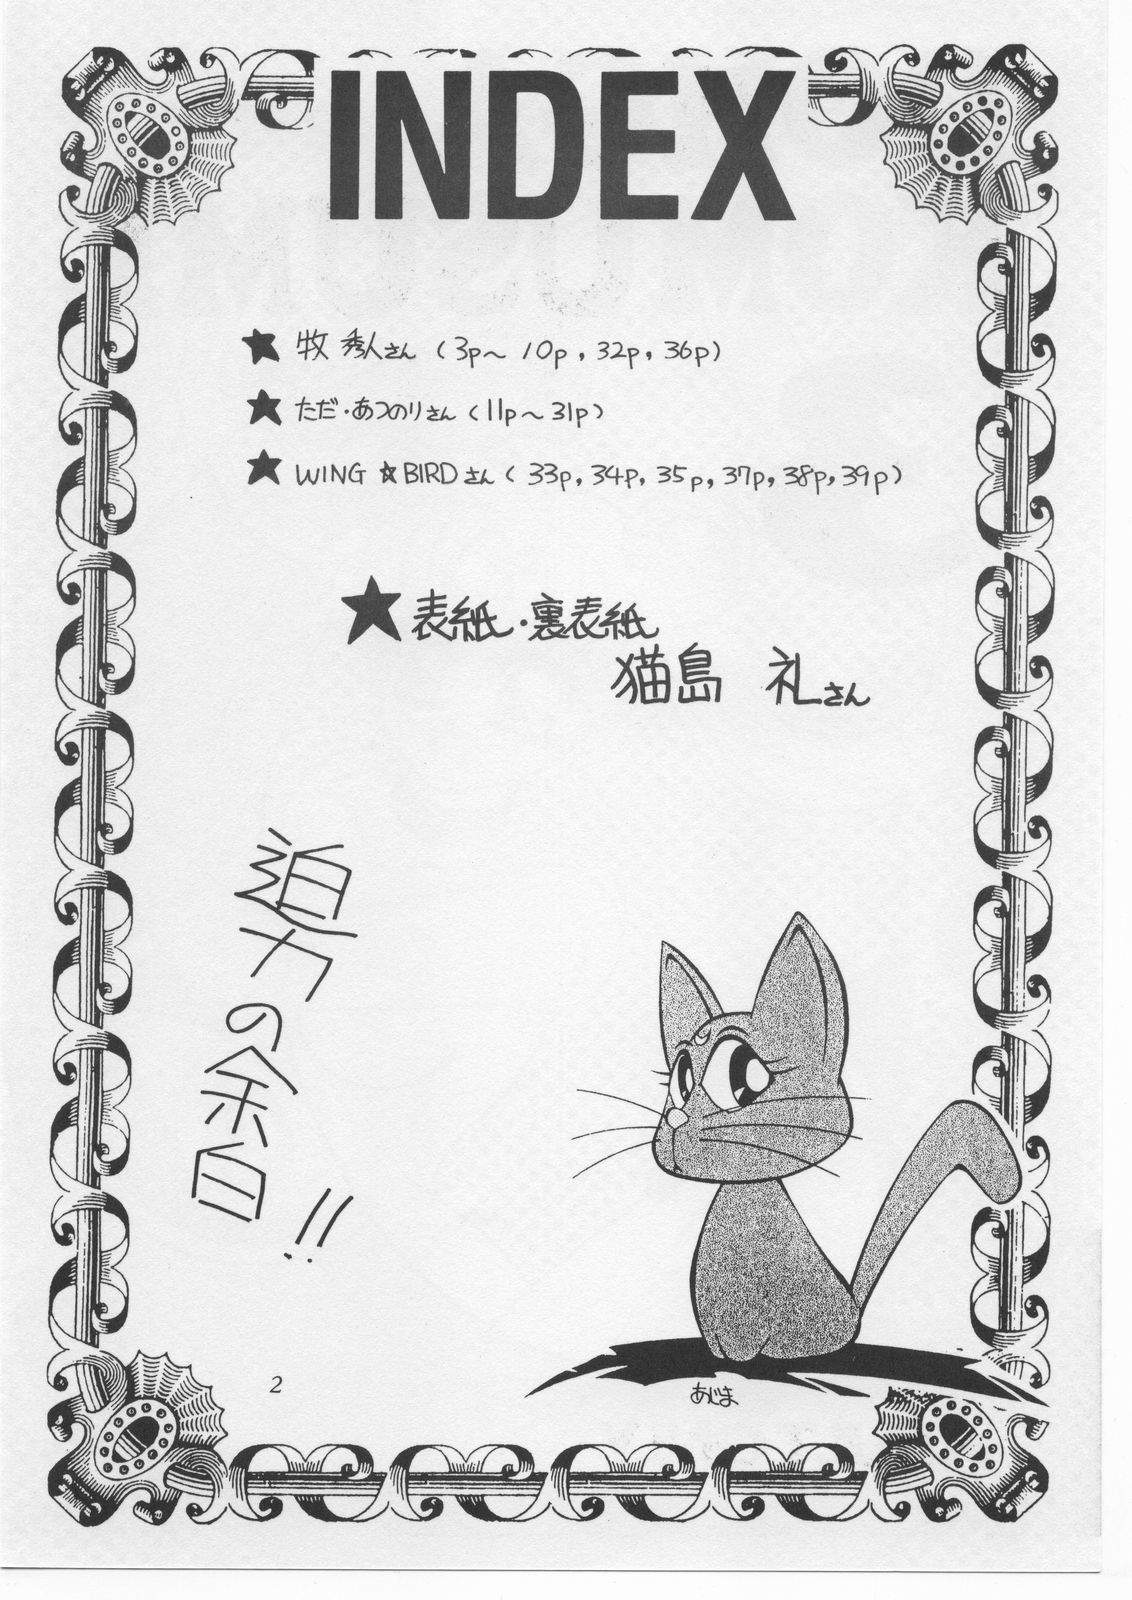 INDEX
★ 牧 秀人さん (3p～10p, 32p, 36p)
★ ただ・あつのりさん (11p～31p)
★ WING ★ BIRDさん (33p, 34p, 35p, 37p, 38p, 39p)
★ 表紙・裏表紙
猫島 礼さん
迫力の余白!!
あじま
2